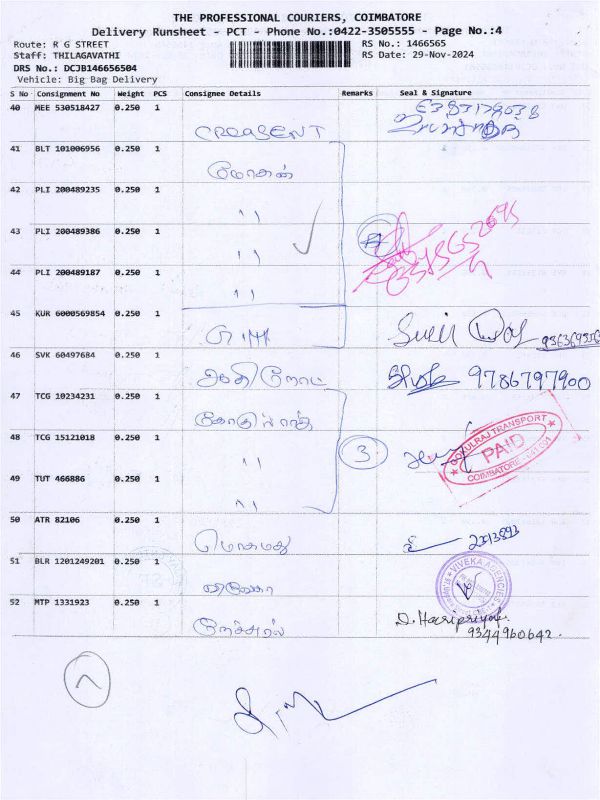 THE PROFESSIONAL COURIERS, COIMBATORE
Delivery Runsheet - PCT - Phone No.:0422-3505555 - Page No.:4
Route: R G STREET
RS No.: 1466565
Staff: THILAGAVATHI
RS Date: 29-Nov-2024
DRS No.: DCJB146656504
Vehicle: Big Bag Delivery
S No Consignment No Weight PCS Consignee Details Remarks Seal & Signature
40 MEE 530518427 0.250 1
CRESSENT
41 BLT 101006956 0.250 1
மோகன்
42 PLI 200489235 0.250 1
"
43 PLI 200489386 0.250 1
"
44 PLI 200489187 0.250 1
"
45 KUR 6000569854 0.250 1
46 SVK 60497684 0.250 1
9786797900
47 TCG 10234231 0.250 1
48 TCG 15121018 0.250 1
" 3
GOKULRAJ TRANSPORT
PAID
COIMBATORE - 641 001
49 TUT 466886 0.250 1
"
50 ATR 82106 0.250 1
51 BLR 1201249201 0.250 1
VIVEKA AGENCIES
52 MTP 1331923 0.250 1
D. Haripriya
9344960642.